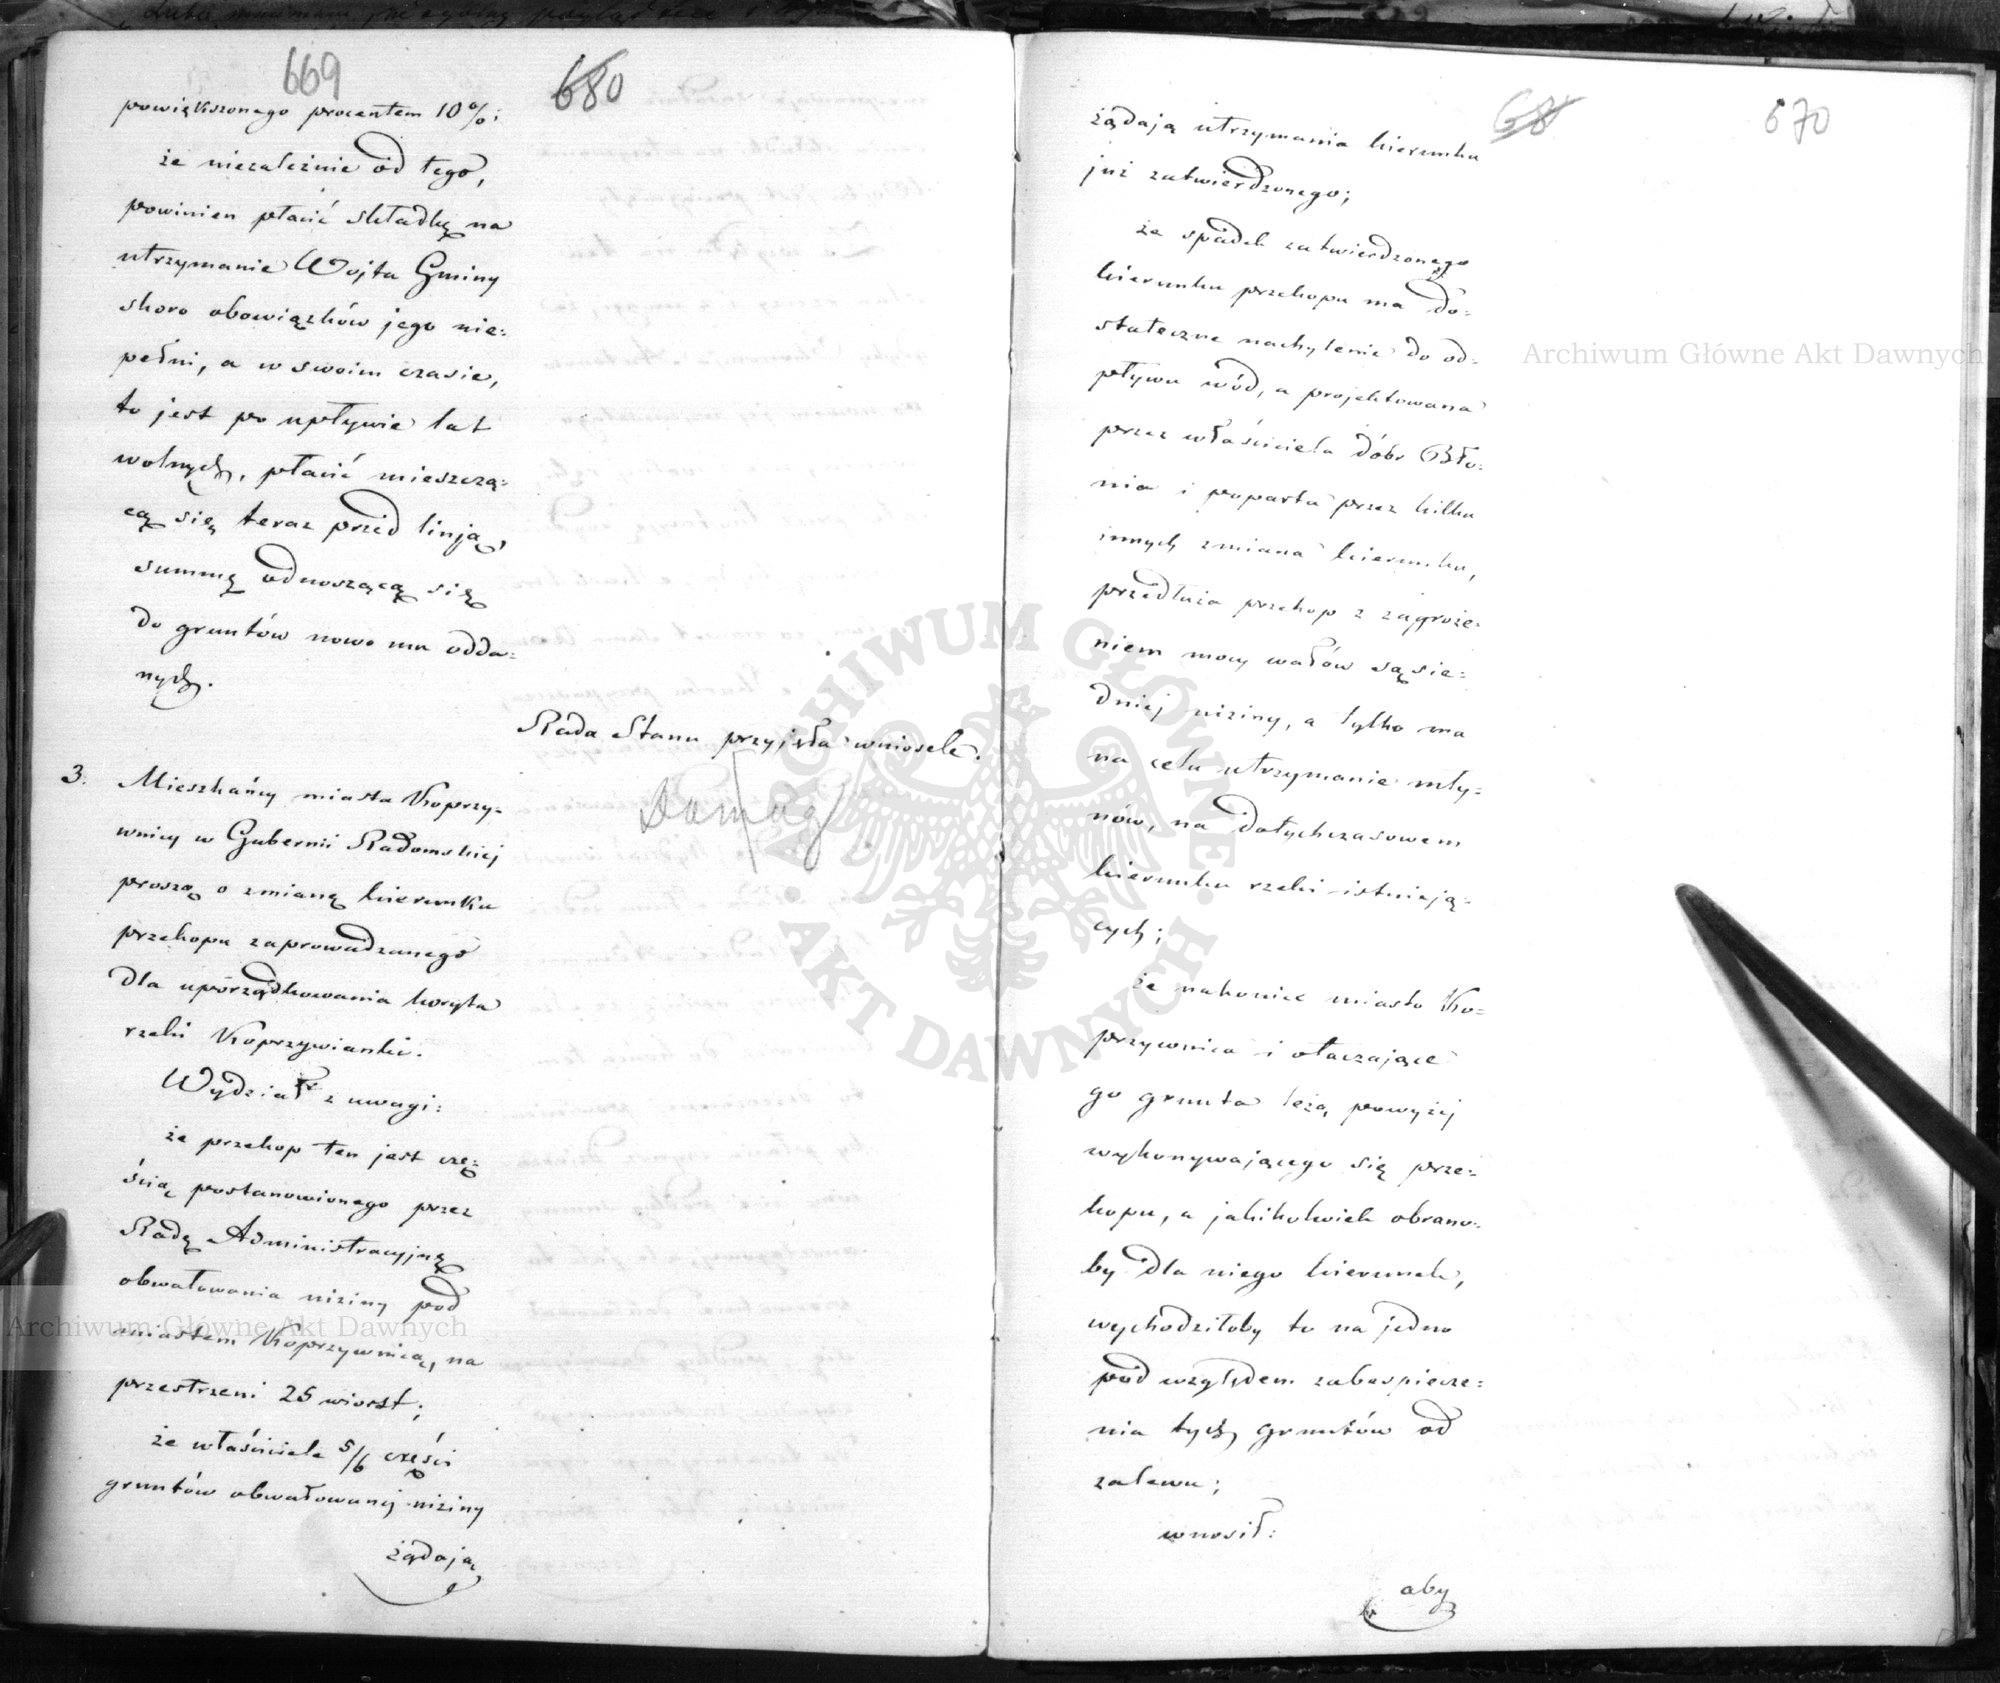 669
680
powiększonego procentem 10%;
że niezależnie od tego,
powinien płacić składkę na
utrzymanie Wojta Gminy
skoro obowiązków jego nie=
pełni, a w swoim czasie,
to jest po upływie lat
wolnych, płacić mieszczą=
cą się teraz przed linją,
summę odnoszącą się
do gruntów nowo mu odda=
nych.
Rada Stanu przyjęła wniosek.
3. Mieszkańcy miasta Koprzy=
wnicy w Gubernii Radomskiej
proszą o zmianę kierunku
przekopu zaprowadzanego
dla uporządkowania koryta
rzeki Koprzywianki.
Wydział z uwagi:
że przekop ten jest czę=
ścią postanowionego przez
Radę Administracyjną
obwałowania niziny pod
miastem Koprzywnicą, na
przestrzeni 25 wiorst;
że właściciele 5/6 części
gruntów obwałowanej niziny
żądają
68
670
żądają utrzymania kierunku
już zatwierdzonego;
że spadek zatwierdzonego
kierunku przekopu ma do=
stateczne nachylenie do od=
pływu wód, a projektowana
przez właściciela dóbr Bło=
nia i poparta przez kilku
innych zmiana kierunku,
przedłuża przekop z zagroże=
niem mocy wałów sąsie=
dniej niziny, a tylko ma
na celu utrzymanie mły=
nów, na dotychczasowem
kierunku rzeki istnieją=
cych;
że nakoniec miasto Ko=
przywnica i otaczające
go grunta leżą powyżej
wykonywającego się prze=
kopu, a jakikolwiek obrano=
by dla niego kierunek,
wychodziłoby to na jedno
pod względem zabezpiecze=
nia tych gruntów od
zalewu;
wnosił:
aby
Archiwum Główne Akt Dawnych
Archiwum Główne Akt Dawnych
ARCHIWUM GŁÓWNE
AKT DAWNYCH